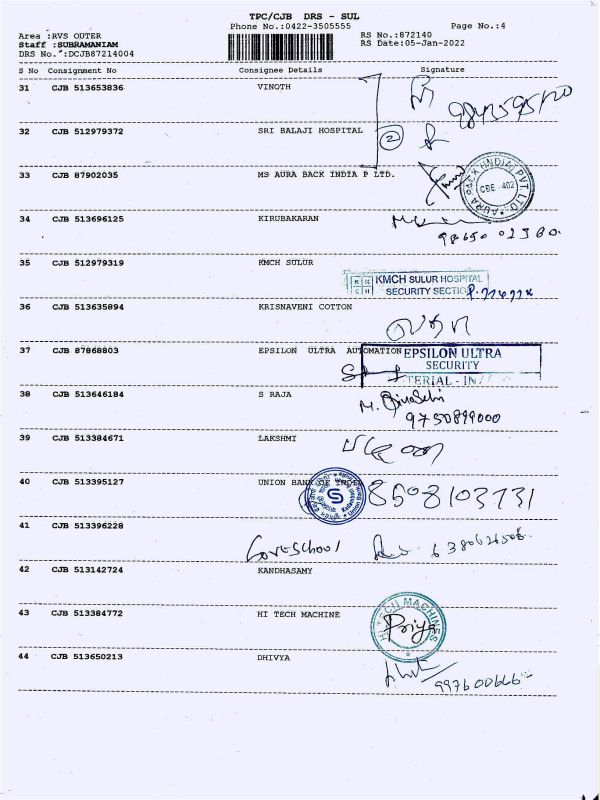 TPC/CJB DRS - SUL
Phone No.:0422-3505555 Page No.:4
Area :RVS OUTER RS No.:872140
Staff :SUBRAMANIAM RS Date:05-Jan-2022
DRS No.:DCJB87214004
S No Consignment No Consignee Details Signature
31 CJB 513653836 VINOTH
32 CJB 512979372 SRI BALAJI HOSPITAL 2
33 CJB 87902035 MS AURA BACK INDIA P LTD.
CBE - 402
34 CJB 513696125 KIRUBAKARAN
35 CJB 512979319 KMCH SULUR
KMCH SULUR HOSPITAL
SECURITY SECTION
36 CJB 513635894 KRISNAVENI COTTON
37 CJB 87868803 EPSILON ULTRA AUTOMATION EPSILON ULTRA
SECURITY
38 CJB 513646184 S RAJA
9750899000
39 CJB 513384671 LAKSHMI
40 CJB 513395127 UNION BANK OF INDIA 8508103731
41 CJB 513396228
42 CJB 513142724 KANDHASAMY
43 CJB 513384772 HI TECH MACHINE
HI TECH MACHINES
Priya
44 CJB 513650213 DHIVYA